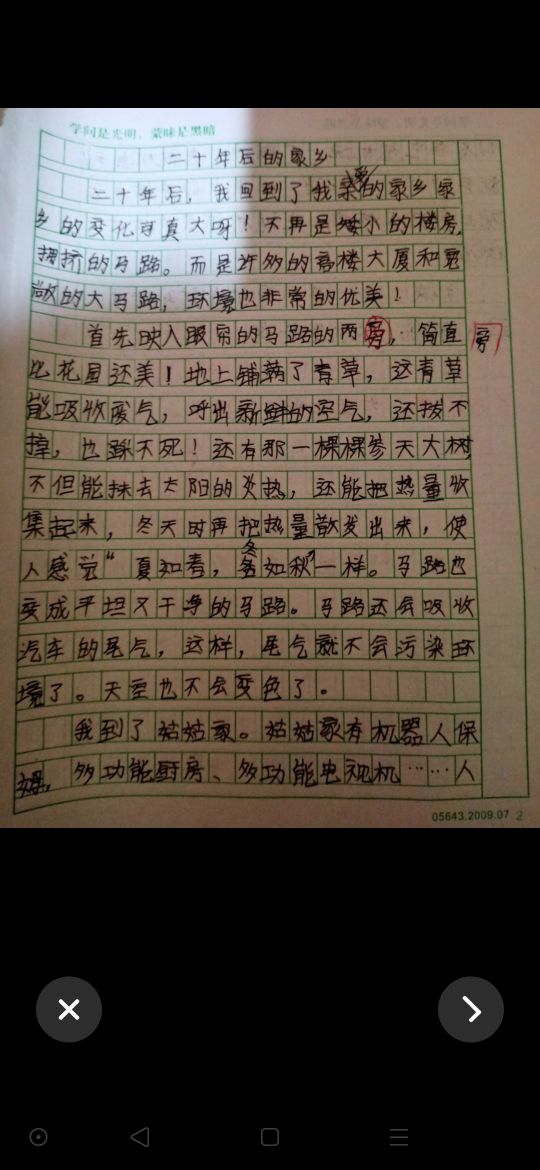 学问是光明，蒙昧是黑暗
二十年后的家乡
二十年后，我回到了我亲爱的家乡家
乡的变化可真大呀！不再是矮小的楼房，
拥挤的马路。而是许多的高楼大厦和宽
敞的大马路，环境也非常的优美！
首先映入眼帘的马路的两旁，简直 旁
比花园还美！地上铺满了青草，这青草
能吸收废气，呼出新鲜的空气，还拔不
掉，也踩不死！还有那一棵棵参天大树，
不但能抹去太阳的炎热，还能把热量收
集起来，冬天时再把热量散发出来，使
人感觉“夏如春，冬如秋”一样。马路也
变成平坦又干净的马路。马路还会吸收
汽车的尾气，这样，尾气就不会污染环
境了。天空也不会变色了。
我到了姑姑家。姑姑家有机器人保
姆，多功能厨房、多功能电视机……人
05643.2009.07 2